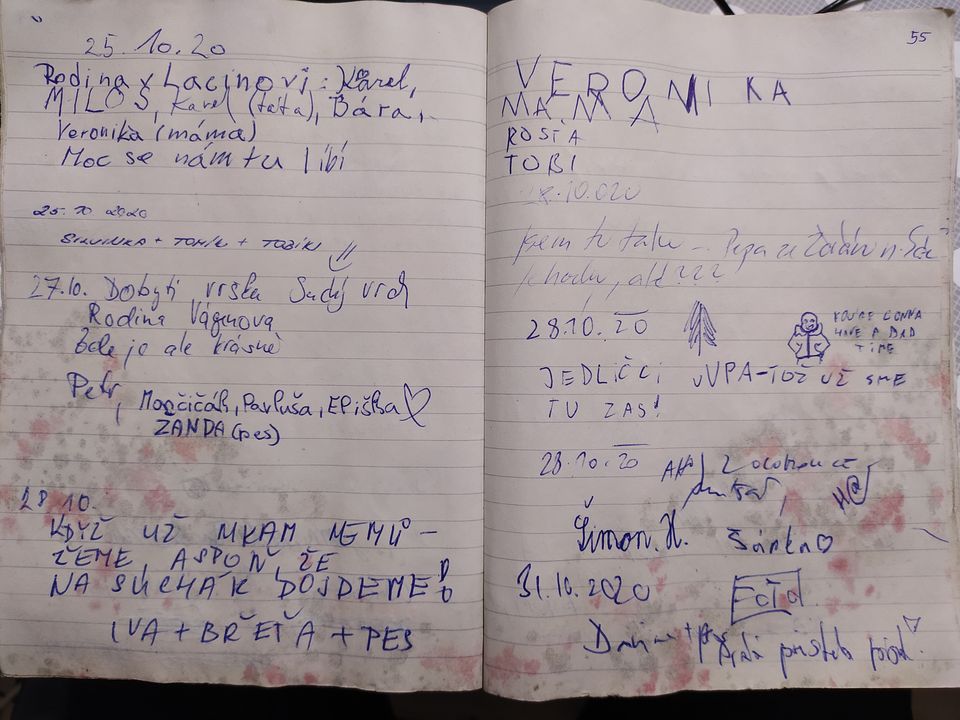 25.10.20
Rodina Lacinovi: Karel,
MILOŠ, Karel (táta), Bára,
Veronika (máma)
Moc se nám tu líbí
25.10 2020
SIMINKA + TOMÍK + TOBÍK
27.10. Dobytí vrška Suchý vrch
Rodina Vágnerova
bde je ale krásně
Petr,
Mončičák, Pavluša, Eliška
ŽANDA (pes)
28 10.
KDYŽ UŽ NIKAM NEMŮ-
ŽEME, ASPOŇ, ŽE
NA SUCHÁK DOJDEME
IVA + BŘEŤA + PES
55
VERONIKA
MAMA
ROSŤA
TOBI
.10.020
jsem tu taky Pepa ze Žďáru n. Sáz
ale ???
28.10. 20
YOU'RE GONNA
HAVE A BAD
TIME
JEDLIČCI UVPA-TOŽ UŽ SME
TU ZAS!
28.10.20
z Olomouce
Šimon. H. Šárka
31.10.2020